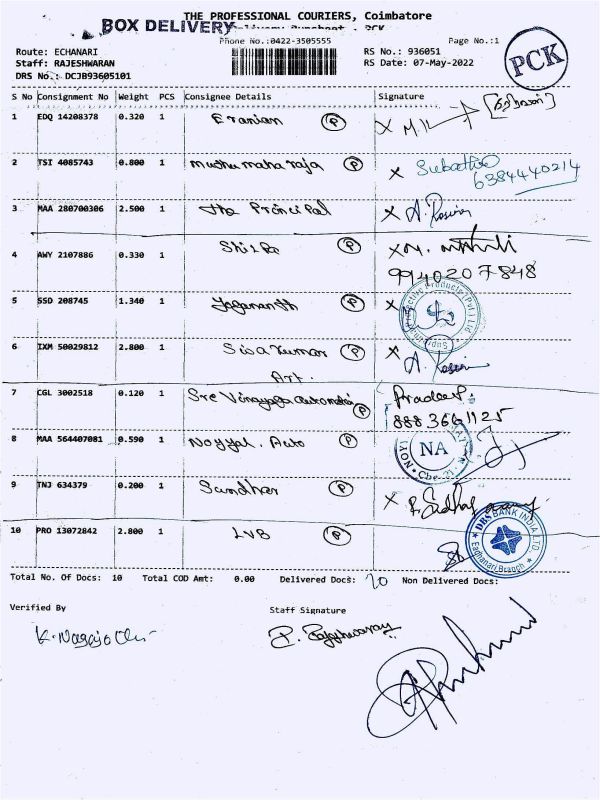 THE PROFESSIONAL COURIERS, Coimbatore
BOX DELIVERY
PCK
Phone No.:0422-3505555 Page No.:1
Route: ECHANARI RS No.: 936051
Staff: RAJESHWARAN RS Date: 07-May-2022
DRS No.: DCJB93605101
PCK
S No Consignment No Weight PCS Consignee Details Signature
1 EDQ 14208378 0.320 1 Eranian P X
2 TSI 4085743 0.800 1 muthu maha raja P X
6384440214
3 MAA 280700306 2.500 1 the Principal X A. Rosini
4 AWY 2107886 0.330 1 P X M.
9940207848
5 SSD 208745 1.340 1 Jagananth P X
6 IXM 50029812 2.800 1 Siva Kumar P X A. Rosini
Art.
7 CGL 3002518 0.120 1 Sre Vinayaga automation P Pradeep.
8883661125
8 MAA 564407081 0.590 1 Noyyal. Auto P NA
9 TNJ 634379 0.200 1 Sundhar P X
10 PRO 13072842 2.800 1 LVB P DBS BANK INDIA LTD.
Eachanari Branch
Total No. Of Docs: 10 Total COD Amt: 0.00 Delivered Docs: 10 Non Delivered Docs:
Verified By Staff Signature